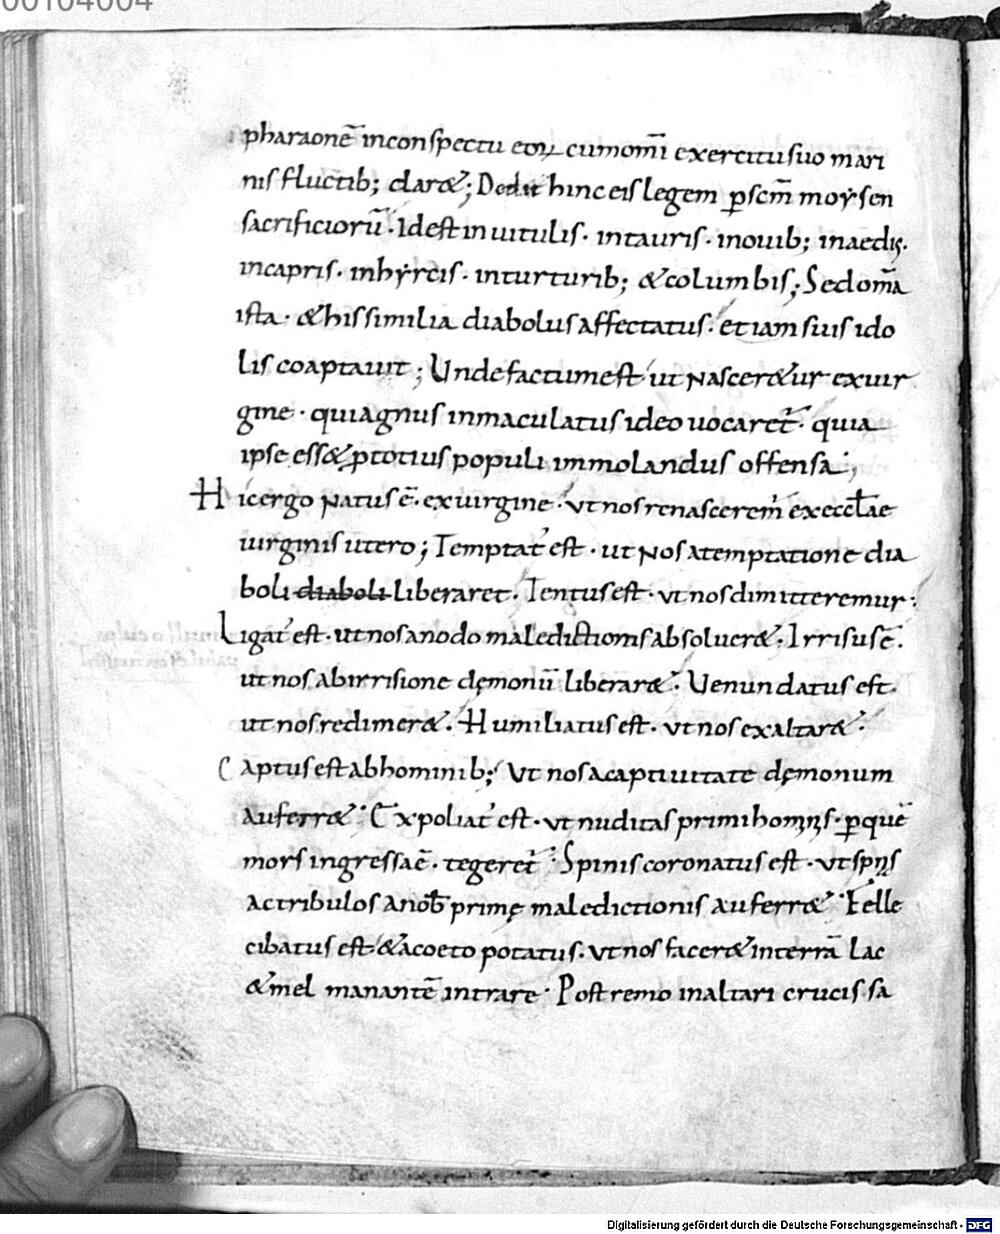 00104004
pharaonē inconspectu eoꝝ cumom̄i exercitusuo mari
nisfluctib; claræ; Dedit hinc eislegem ꝑscm̄ moẏsen
sacrificiorū · Idest inuitulis · intauris · inouib; inaedis ·
incapris · inhẏrcis · inturturib; &columbis; Sedom̄a
ista · &hissimilia diabolusaffectatus · etiam suis ido
lis coaptauit ; Undefactumest · ut nascer&ur exuir
gine · quiagnus inmaculatus ideo uocaret̄ · quia
ipse ess& ꝓtotius populi immolandus offensa ;
Hicergo natus ē · exuirgine · ut nos renascerem̄ execcl̄ae
uirginis utero ; Temptat᾽ est · ut nos atemptatione dia
boli diaboli liberaret · Tentusest · ut nos dimitteremur :
Ligat᾽ est · ut nos anodo maledictionis absoluer& · Irrisus ē ·
ut nos abirrisione dęmoniū liberar& · Uenundatus est ·
ut nos redimer& · Humiliatus est · ut nos exaltar& ·
Captus est abhominib; ut nos acaptiuitate dęmonum
auferr& · Expoliat᾽ est · ut nuditas primihominis · ꝑquē
mors ingressa ē · tegeret̄ · Spinis coronatus est · ut spinas
actribulos anob̄ primę maledictionis auferr& · Felle
cibatus est &acoeto potatus · ut nos facer& interrā lac
&mel manantē intrare · Postremo inaltari crucis sa
Digitalisierung gefördert durch die Deutsche Forschungsgemeinschaft - DFG